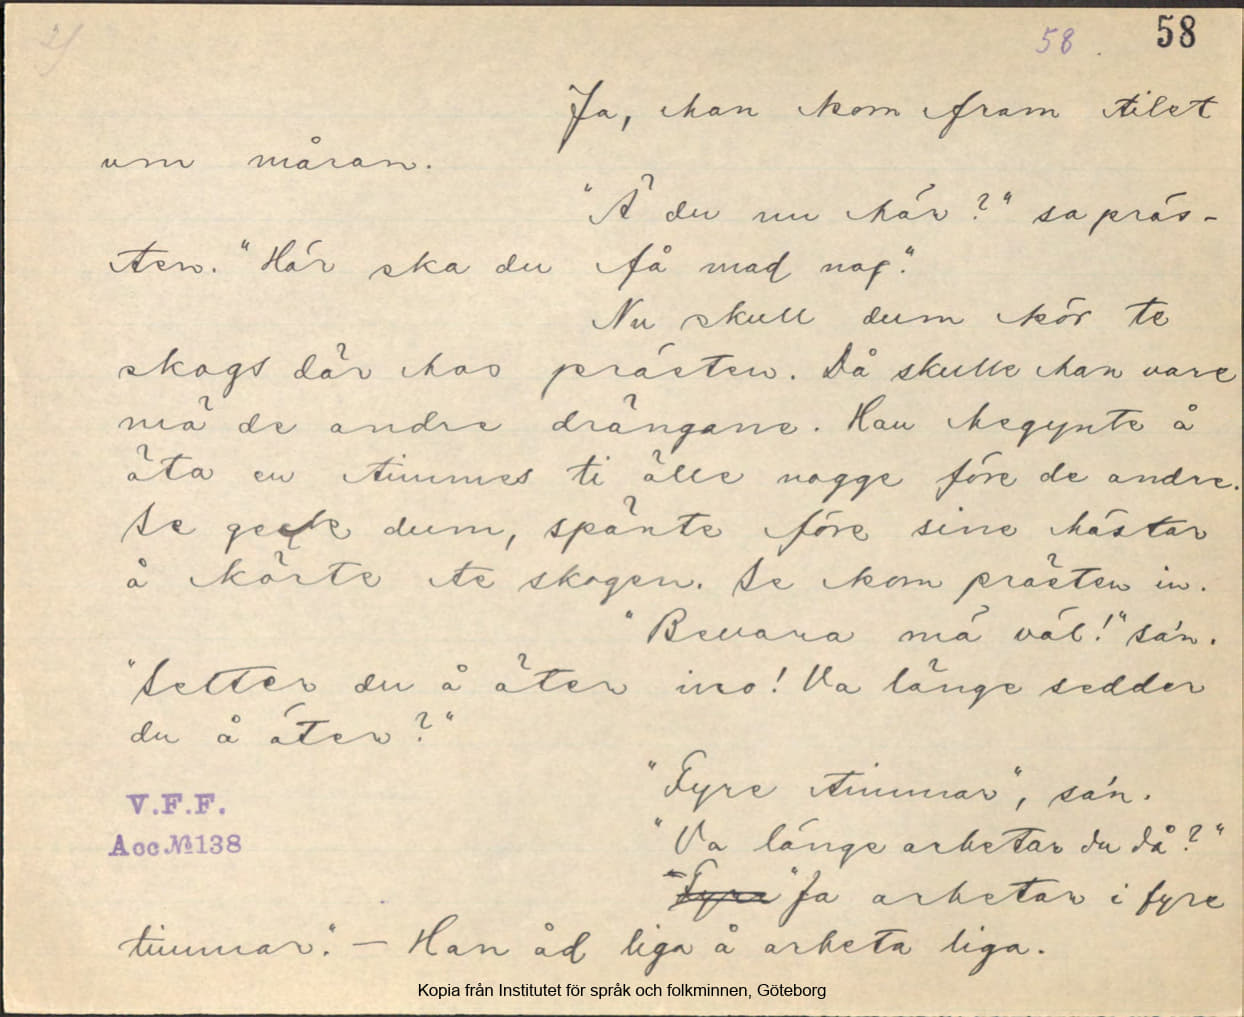 58. 58
Ja, han kom fram tilet
um måran.
"Ä du nu här?" sa präs-
ten. "Här ska du få mad nog."
Nu skull dum kör te
skogs där hos prästen. Då skulle han vare
mä de andre drängane. Han begynte å
äta en timmes ti älle nogge före de andre.
Se gek dum, spänte före sine hästar
å körte te skogen. Se kom prästen in.
"Bevara mä väl!" sa'n.
"Setter du å äter ino! Va länge sedder
du å äter?"
"Fyre timmar", sa'n.
"Va länge arbetar du då?"
"Fyra "Ja arbetar i fyre
timmar." — Han åd liga å arbeta liga.
V.F.F.
Acc № 138
Kopia från Institutet för språk och folkminnen, Göteborg